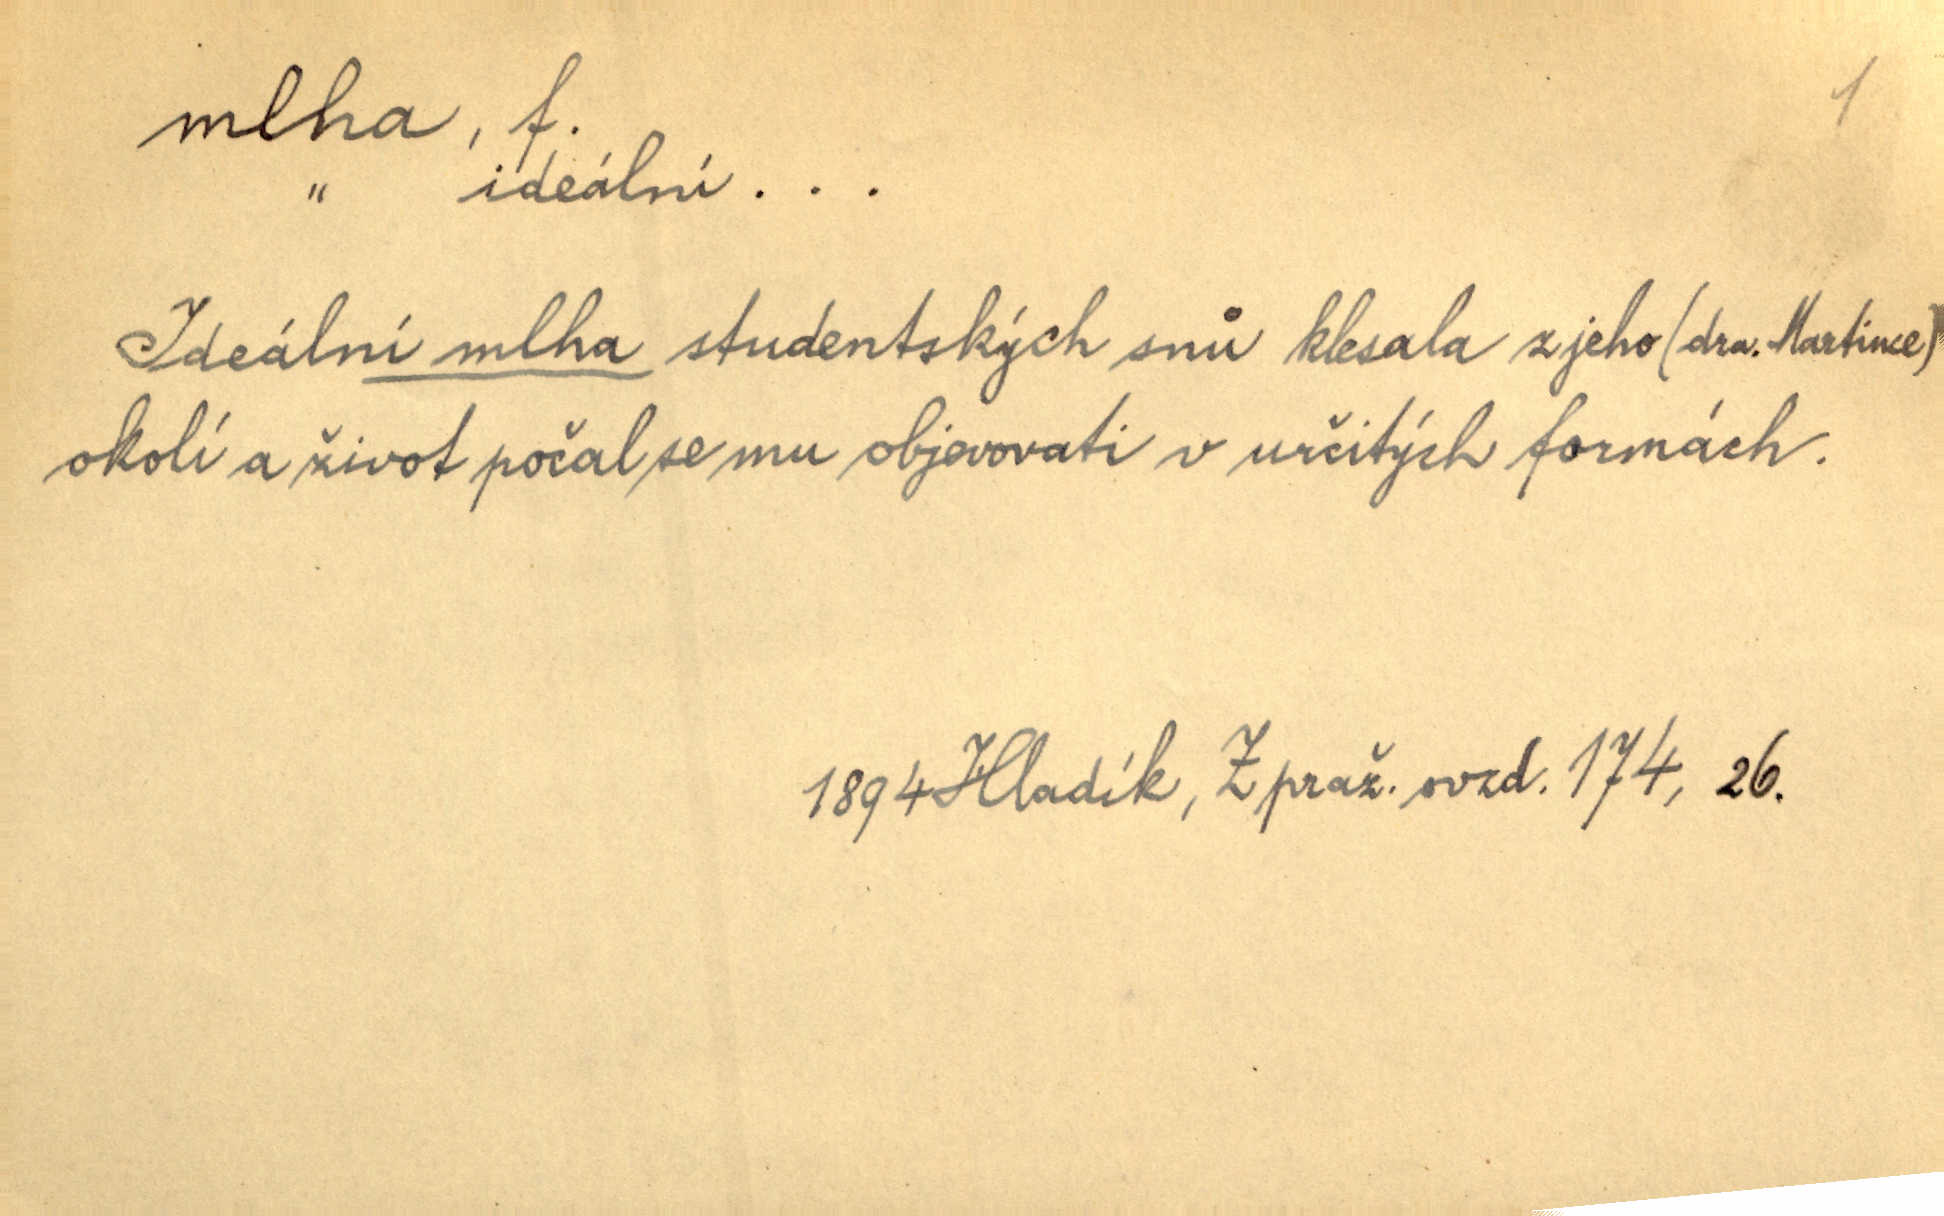 1
mlha, f.
" ideální . . .
Ideální mlha studentských snů klesala z jeho (dra. Martince)
okolí a život počal se mu objevovati v určitých formách.
1894 Hladík, Z praž. ovzd. 174, 26.